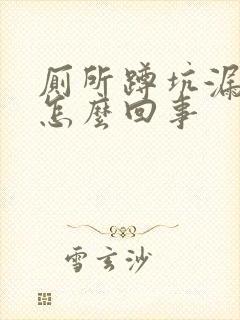 厠所蹲坑漏
怎麼回事
雪玄沙